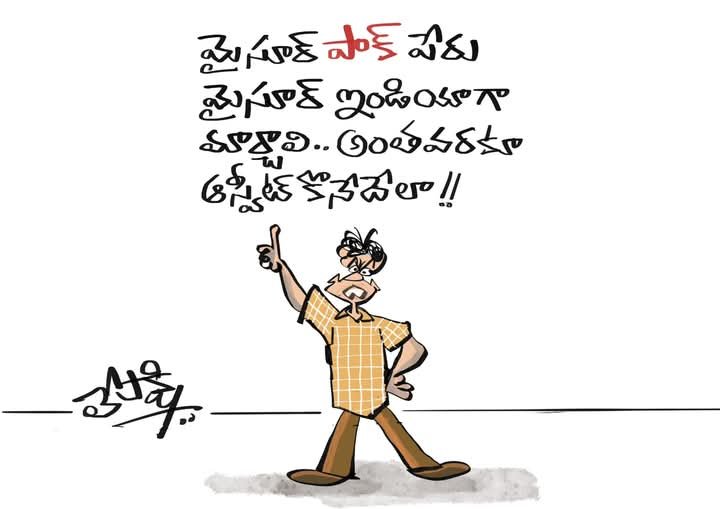 మైసూర్ పాక్ పేరు
మైసూర్ ఇండియాగా
మార్చాలి.. అంతవరకూ
ఆస్వీట్ కొనేదేలా!!